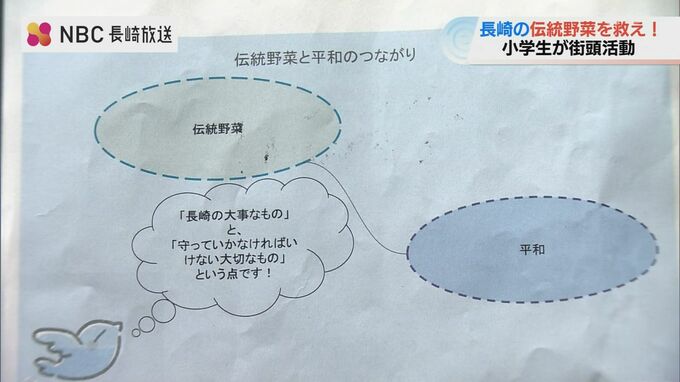 NBC 長崎放送
長崎の伝統野菜を救え!
小学生が街頭活動
伝統野菜と平和のつながり
伝統野菜
「長崎の大事なもの」
と、
「守っていかなければい
けない大切なもの」
という点です!
平和